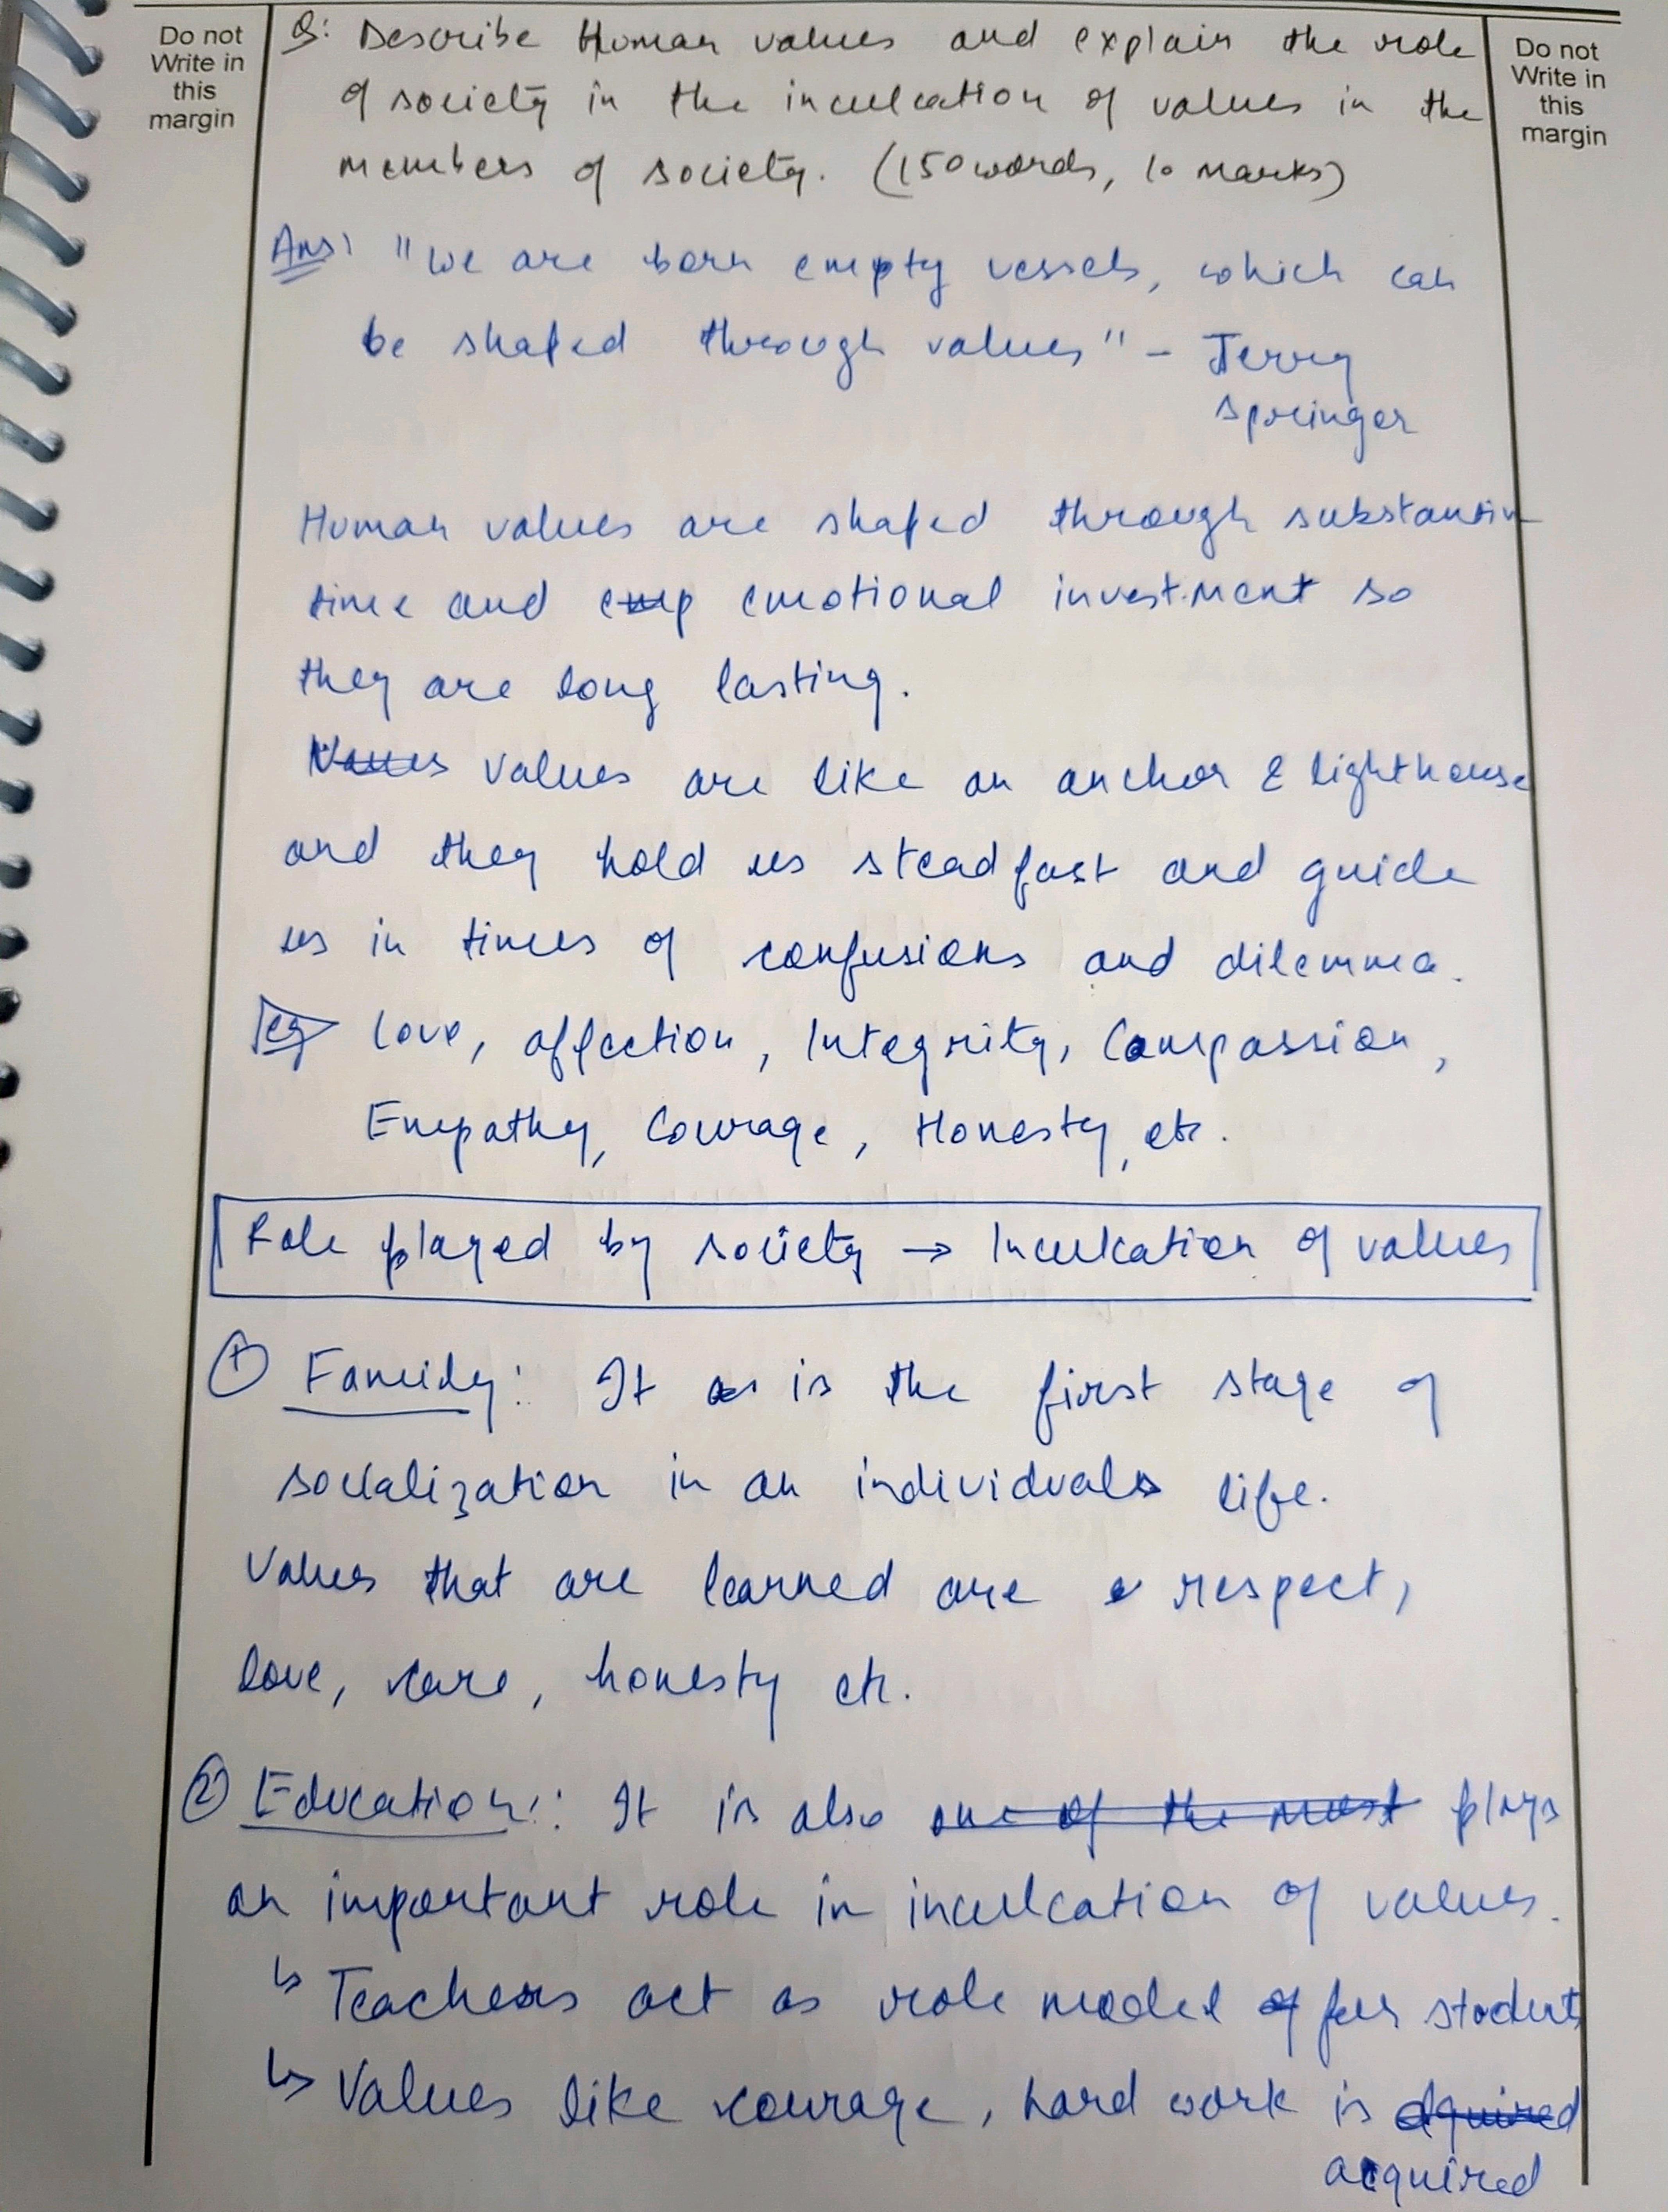 Do not
Write in
this
margin
Q: Describe Human values and explain the role
of society in the inculcation of values in the
members of society. (150 words, 10 marks)
Do not
Write in
this
margin
Ans: "We are born empty vessels, which can
be shaped through values" - Jerry
Springer
Human values are shaped through substantive
time and emp emotional investment so
they are long lasting.
Values values are like an anchor & lighthouse
and they hold us steadfast and guide
us in times of confusions and dilemma.
eg love, affection, Integrity, Compassion,
Empathy, Courage, Honesty, etc.
Role played by society → Inculcation of values
① Family: It as is the first stage of
socialization in an individuals life.
Values that are learned are respect,
love, care, honesty etc.
② Education: It is also one of the most plays
an important role in inculcation of values.
↳ Teachers act as role model of for students
↳ Values like courage, hard work is
acquired